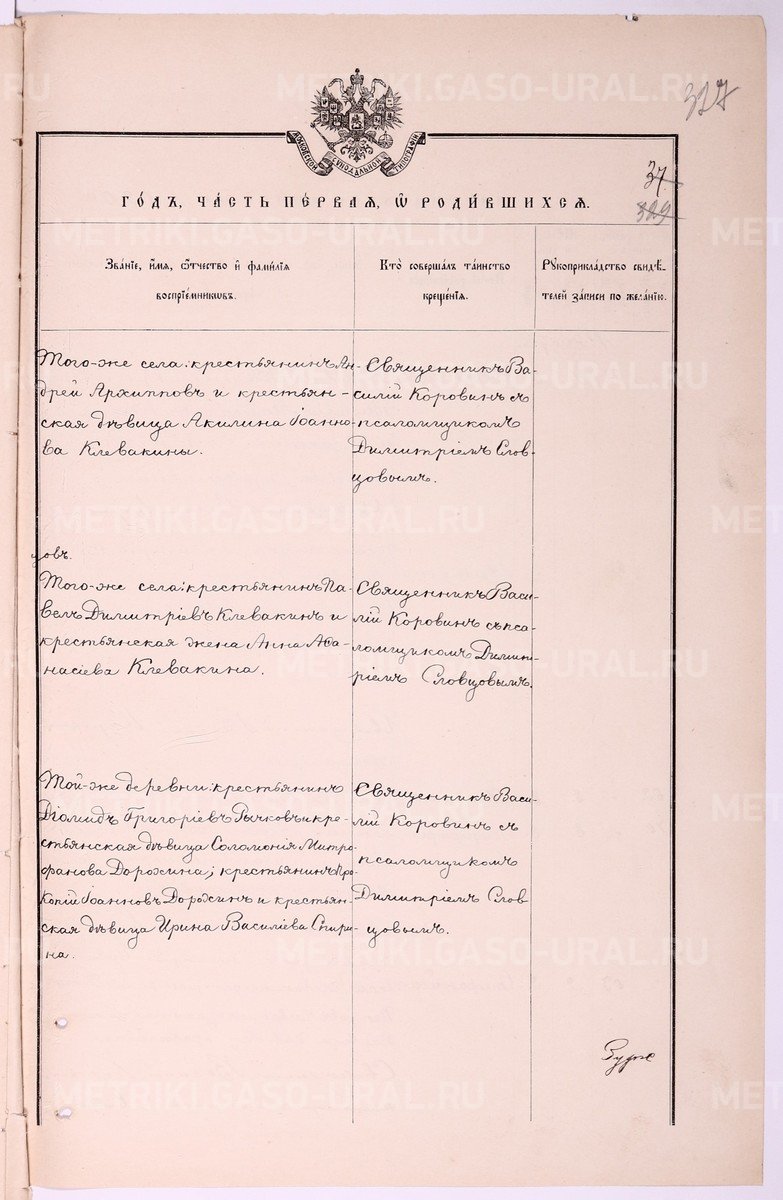 327
МОСКОВСКОЙ СѴНОДАЛЬНОЙ ТИПОГРАФІИ
37
329
ГО́ДЪ, ЧА́СТЬ ПЕ́РВАЯ, Ѡ҆ РОДИ́ВШИХСЯ.
Зва́нїе, и҆́мѧ, ѻ҆́тчество и҆ фамилїѧ
воспрїе́мникѡвъ.
Кто̀ соверша́лъ та́инство
креще́нїѧ.
Рꙋкоприкла́дство свидѣ́-
телей за́писи по жела́нїю.
Того-же села: крестьянинъ Ан-
дрей Архипповъ и крестьян-
ская дѣвица Акилина Іоанно-
ва Клевакины.
Священникъ Ва-
силій Коровинъ съ
псаломщикомъ
Димитріемъ Слов-
цовымъ.
цовъ.
Того-же села: крестьянинъ Па-
велъ Димитріевъ Клевакинъ и
крестьянская жена Анна Аѳа-
насіева Клевакина.
Священникъ Васи-
лій Коровинъ съ пса-
ломщикомъ Димит-
ріемъ Словцовымъ.
Той-же деревни: крестьянинъ
Діомидъ Григоріевъ Рычковъ и кре-
стьянская дѣвица Соломонія Митро-
фанова Дорохина; крестьянинъ Про-
копій Іоанновъ Дорохинъ и крестьян-
ская дѣвица Ирина Василіева Спири-
на.
Священникъ Васи-
лій Коровинъ съ
псаломщикомъ
Димитріемъ Слов
цовымъ.
METRIKI.GASO-URAL.RU